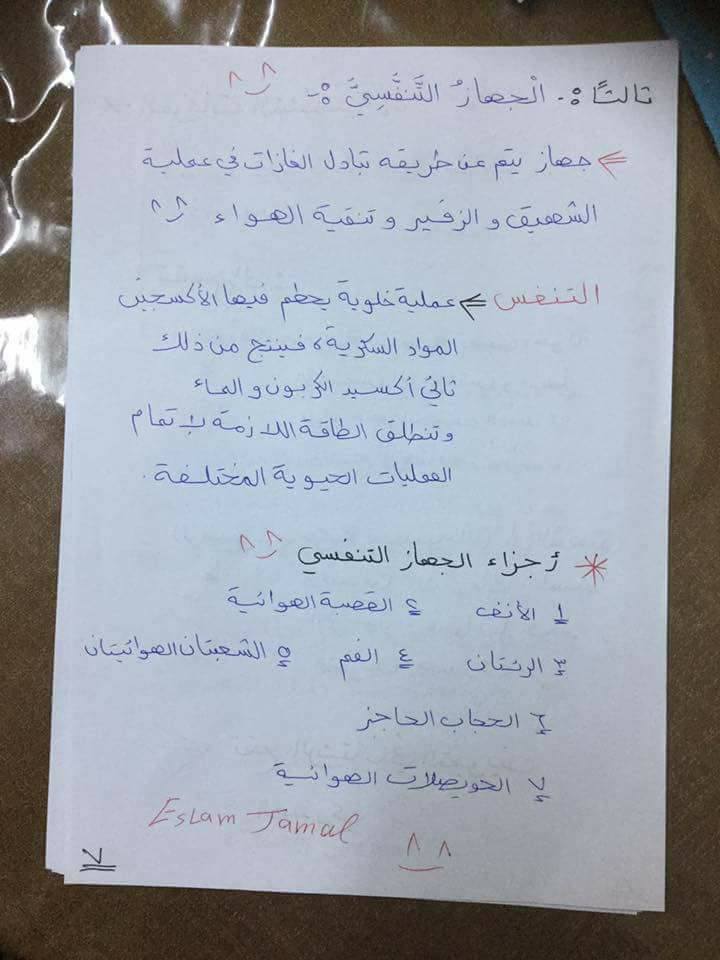 ثالثًا :- الْجهازُ التَّنَفَّسِيَّ :-
جهاز يتم عن طريقه تبادل الغازات في عملية
الشهيق و الزفير و تنقية الهواء
التنفس => عملية خلوية يحطم فيها الأكسجين
المواد السكرية، فينتج من ذلك
ثاني أكسيد الكربون و الماء
وتنطلق الطاقة اللازمة لإتمام
العمليات الحيوية المختلفة.
* أجزاء الجهاز التنفسي
١ الأنف ٢ القصبة الهوائية
٣ الرئتان ٤ الفم ٥ الشعبتان الهوائيتان
٦ الحجاب الحاجز
٧ الحويصلات الهوائية
Eslam Jamal
٧